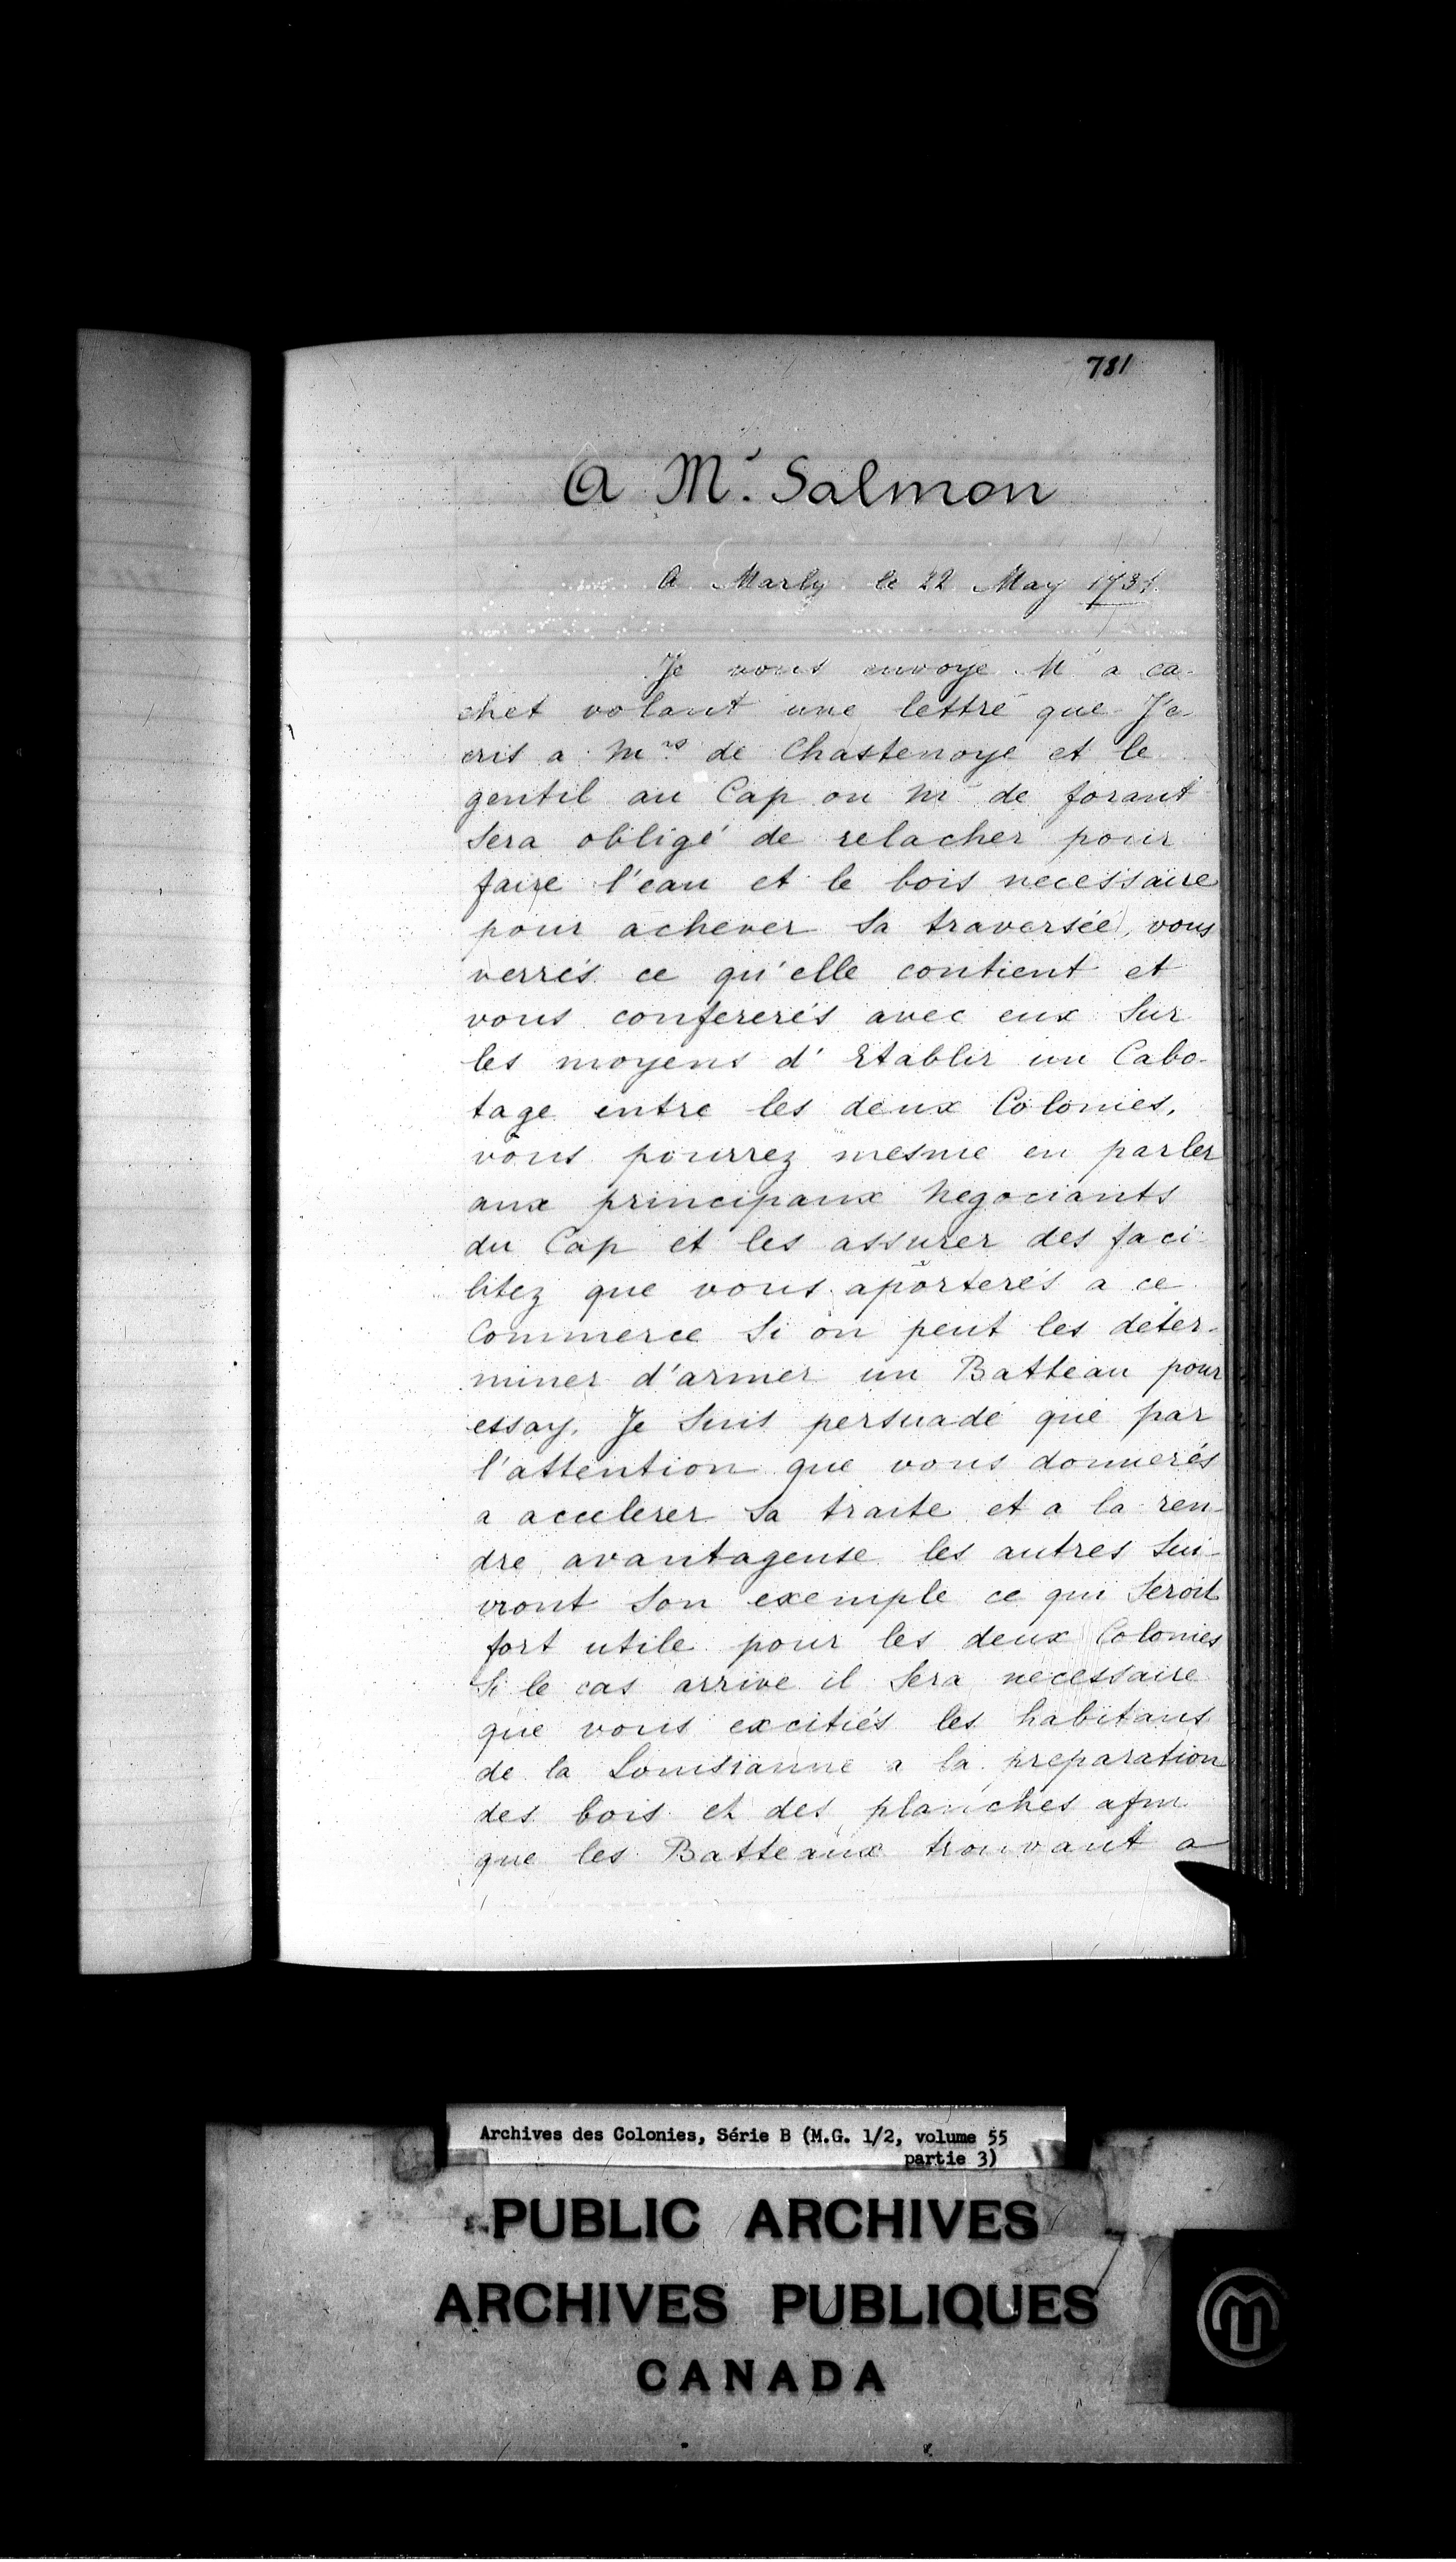 781
A Mr. Salmon
A Marly le 22 May 1731.
Je vous envoye Mr a ca-
chet volant une lettre que J'e-
cris a Mrs de Chastenoye et le
gentil au Cap ou Mr de forant
sera obligé de relacher pour
faire l'eau et le bois necessaire
pour achever sa traversée, vous
verrés ce qu'elle contient et
vous confererés avec eux sur
les moyens d'Etablir un Cabo-
tage entre les deux Colonies,
vous pourrez mesme en parler
aux principaux Negociants
du Cap et les assurer des faci
litez que vous aporterés a ce
Commerce si on peut les deter-
miner d'armer un Batteau pour
essay. Je suis persuadé que par
l'attention que vous donnerés
a accelerer sa traite et a la ren-
dre avantageuse les autres sui-
vront son exemple ce qui seroit
fort utile pour les deux Colonies
Si le cas arrive il sera necessaire
que vous excitiés les habitans
de la Louisianne a la preparation
des bois et des planches afin
que les Batteaux trouvant a
Archives des Colonies, Série B (M.G. 1/2, volume 55
partie 3)
PUBLIC ARCHIVES
ARCHIVES PUBLIQUES
CANADA